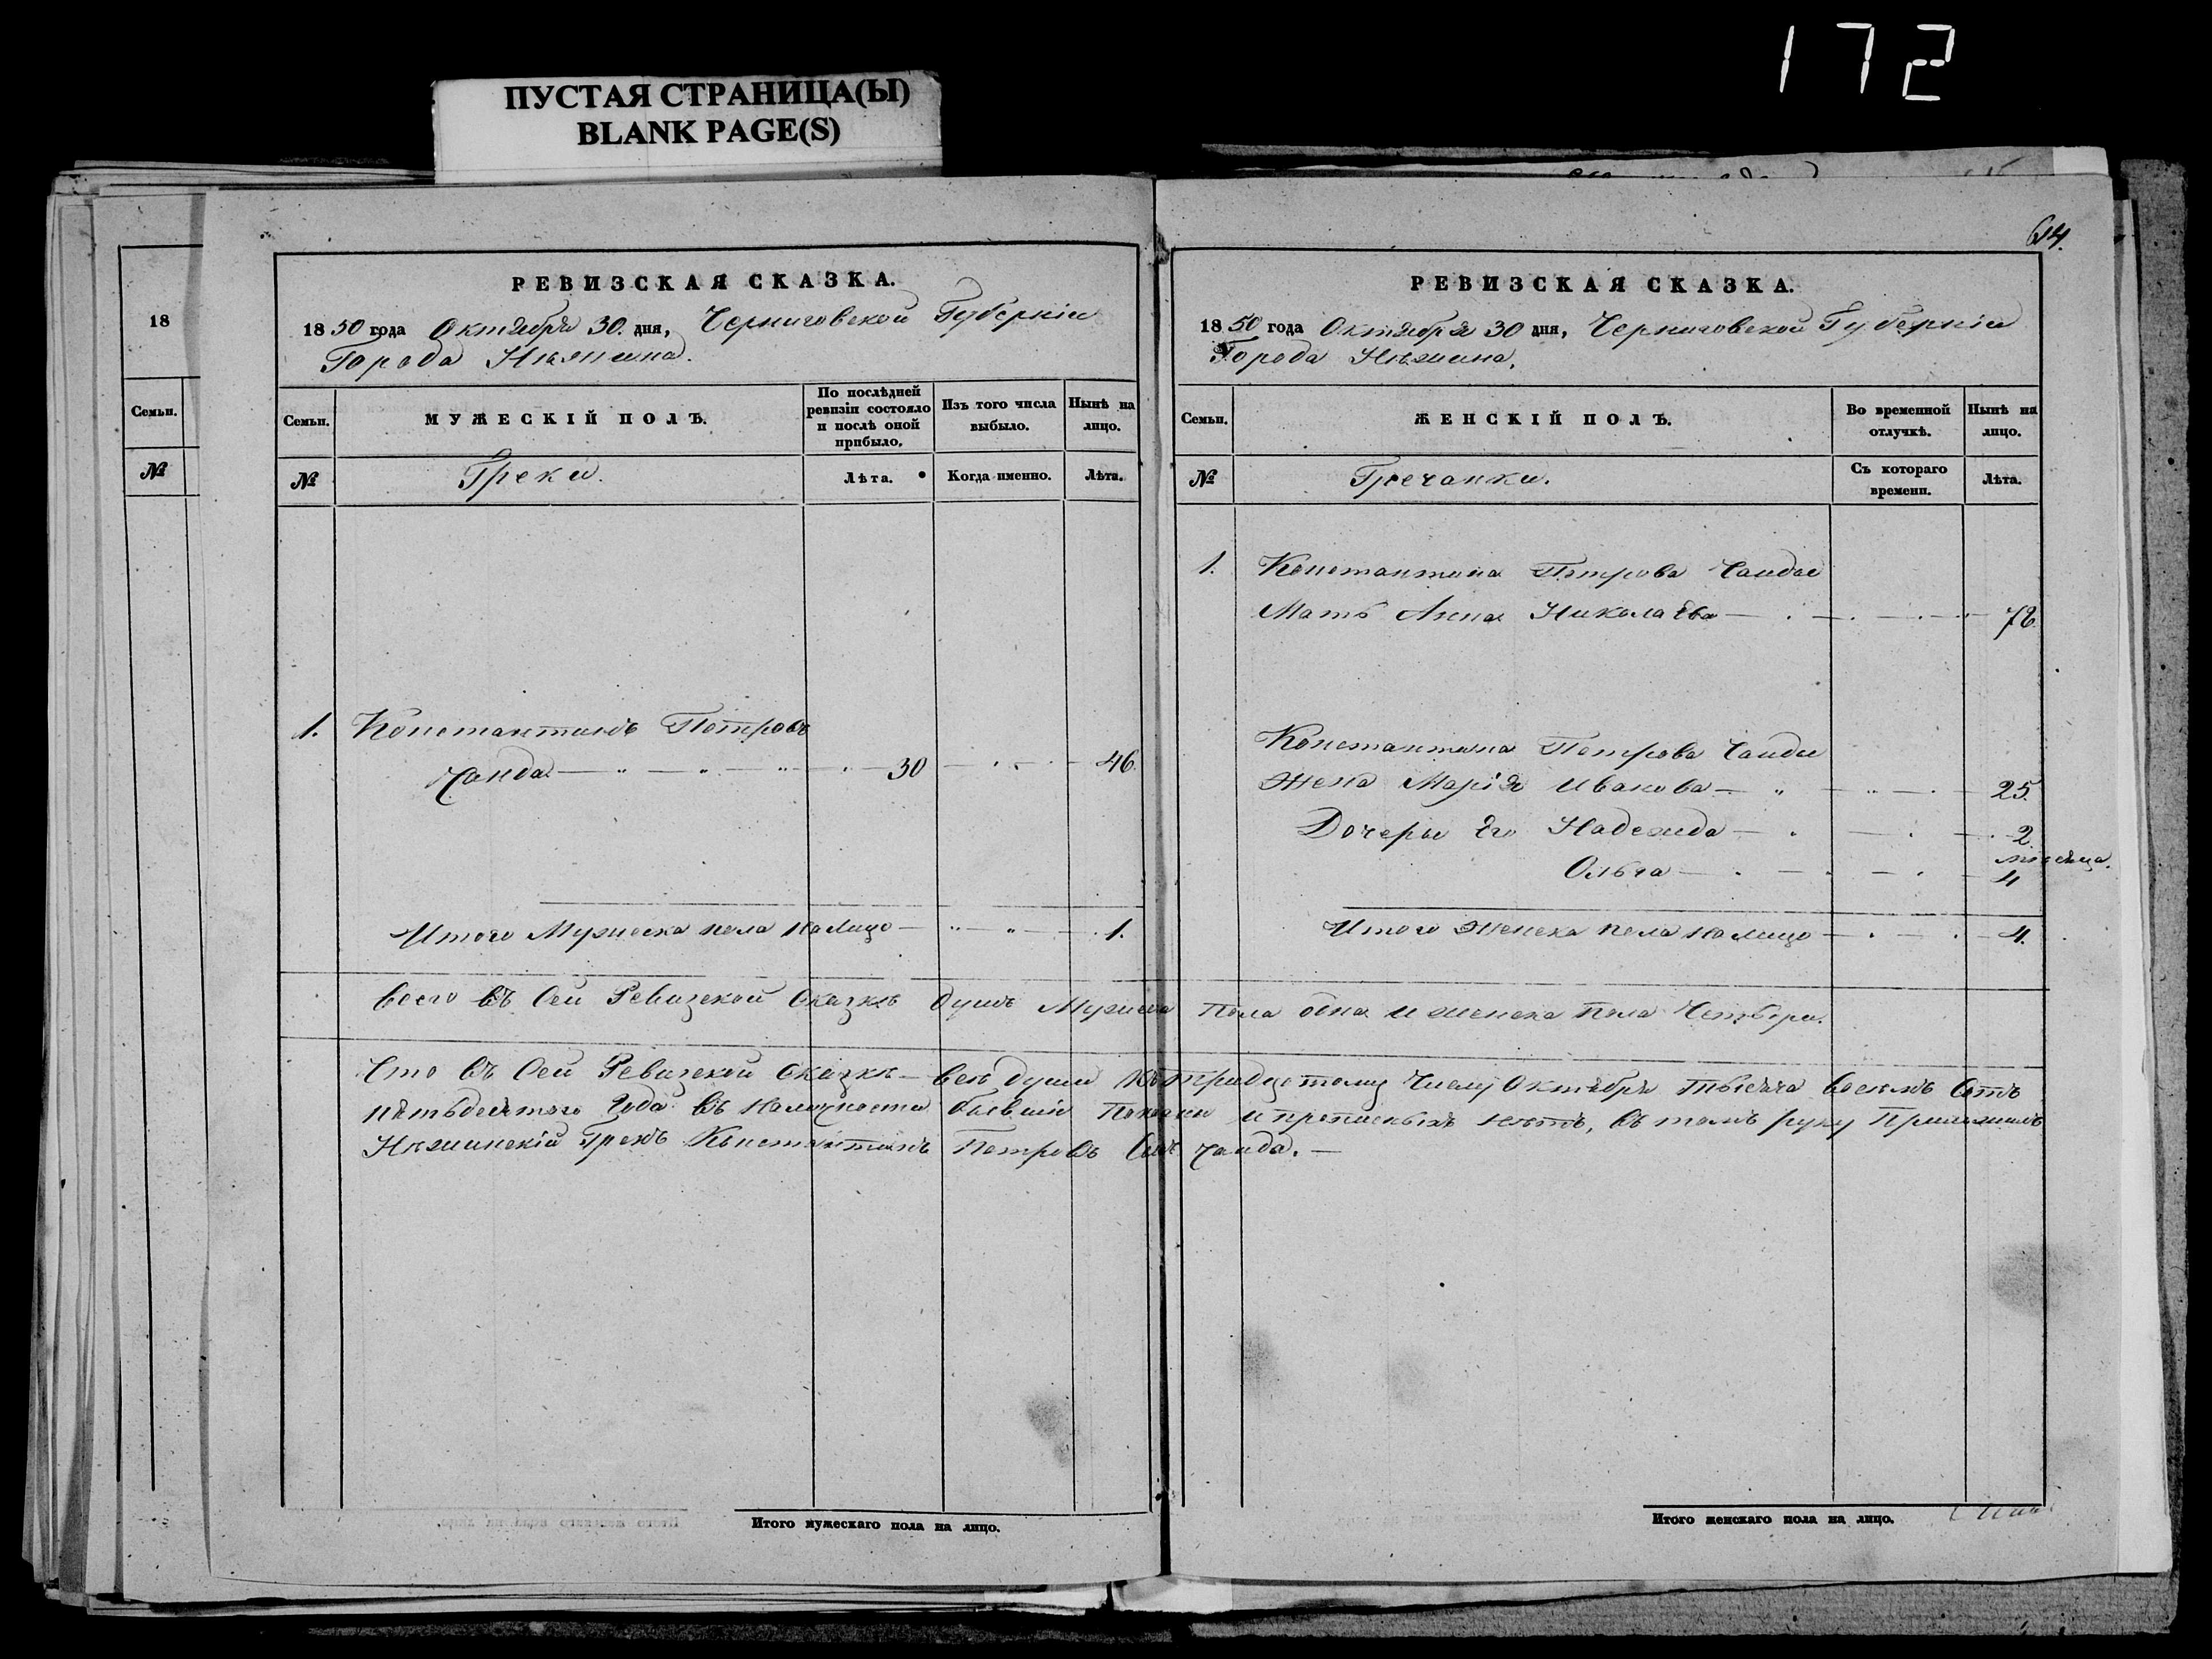 172
ПУСТАЯ СТРАНИЦА(Ы)
BLANK PAGE(S)
18
Семьи.
№
РЕВИЗСКАЯ СКАЗКА.
1850 года Октября 30. дня, Черниговской Губерніи
Города Нѣжина.
Семьи.
МУЖЕСКІЙ ПОЛЪ.
По послѣдней ревизіи состояло и послѣ оной прибыло.
Изъ того числа выбыло.
Нынѣ на лицо.
№
Греки.
Лѣта.
Когда именно.
Лѣта.
1. Константинъ Петровъ
Чанда 30 46.
Итого Мужеска пола на Лицо 1.
64.
РЕВИЗСКАЯ СКАЗКА.
1850 года Октября 30 дня, Черниговской Губерніи
Города Нѣжина.
Семьи.
ЖЕНСКІЙ ПОЛЪ.
Во временной отлучкѣ.
Нынѣ на лицо.
№
Гречанки.
Съ котораго времени.
Лѣта.
1. Константина Петрова Чанды
Мать Анна Николаева
Константина Петрова Чанды
Жена Марія Иванова 25.
Дочери Его Надежда 2.
мѣсяца.
Ольга 4
Итого Женска пола на лицо 4.
Всего въ Сей Ревизской Сказкѣ душъ Мужеска Пола одна и женска Пола Четверо.
Что въ Сей Ревизской Сказкѣ все души къ тридцетому Числу Октября тысяча восемъ Сотъ
пятьдесятого Года въ наличности бывшіе и прописныхъ нѣтъ, въ томъ руку Приложилъ
Нѣжинскій Грекъ Константинъ Петровъ Сынъ Чанда.
Итого мужескаго пола на лицо.
Итого женскаго пола на лицо.